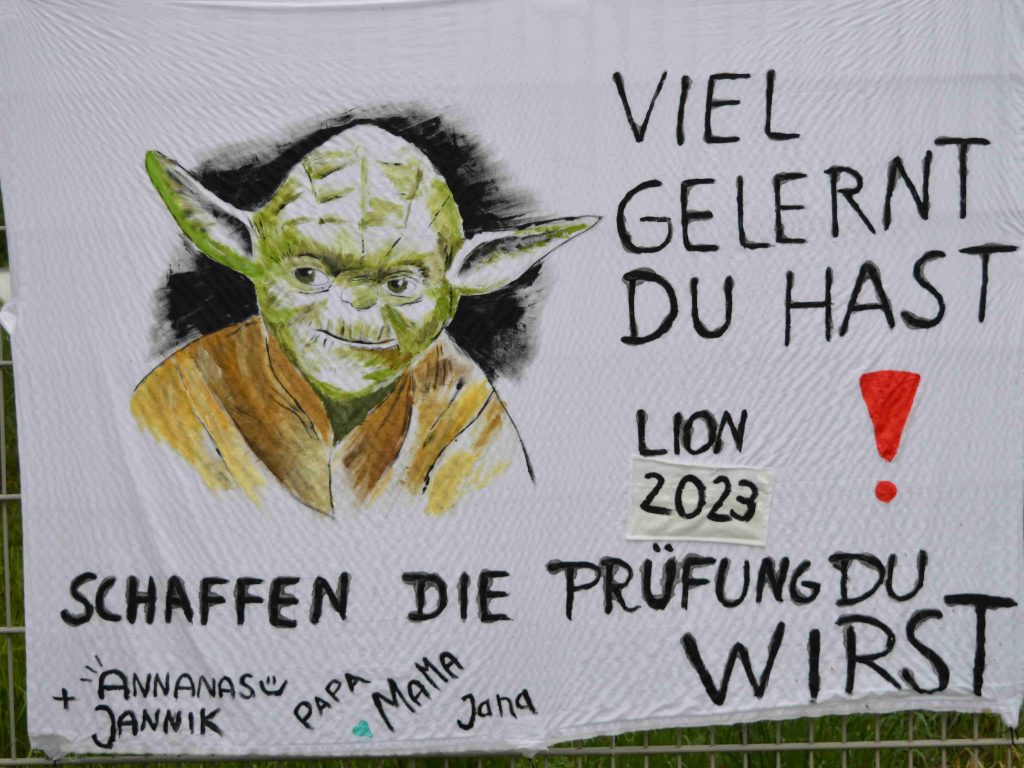 VIEL
GELERNT
DU HAST
!
LION
2023
SCHAFFEN DIE PRÜFUNG DU
WIRST
+ ANNANAS
JANNIK
PAPA
MAMA
Jana